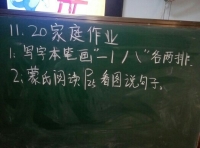 11.20家庭作业
1.写字本笔画"一丨丿㇏"各两排.
2.蒙氏阅读 看图说句子。